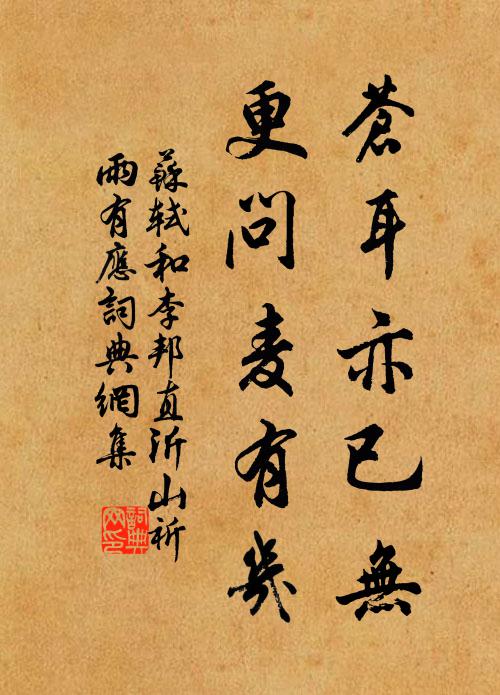 蒼耳亦已無
更問麦有幾
蘇軾和李邦直沂山祈
雨有應詞典網集
詞典網印